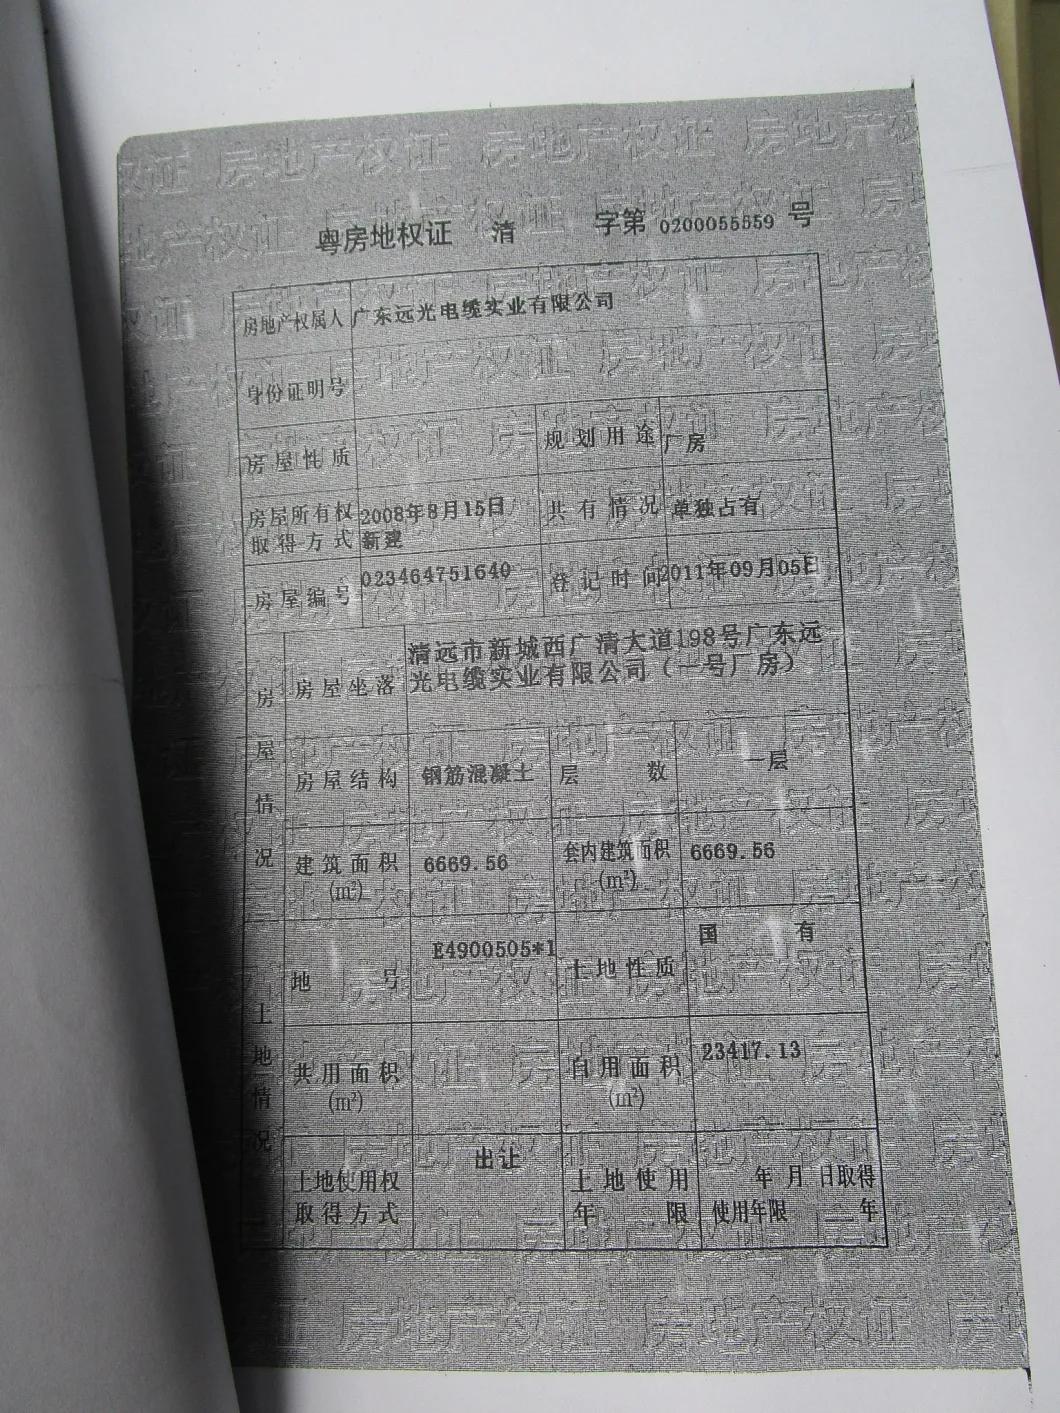 粤房地权证 清 字第 0200055559 号
房地产权属人 广东远光电缆实业有限公司
身份证明号
房屋性质 规划用途 厂房
房屋所有权取得方式 2008年8月15日新建 共有情况 单独占有
房屋编号 023464751640 登记时间 2011年09月05日
房屋情况
房屋坐落 清远市新城西广清大道198号广东远
光电缆实业有限公司（一号厂房）
房屋结构 钢筋混凝土 层数 一层
建筑面积 6669.56 套内建筑面积 6669.56
(m²) (m²)
土地情况
地号 E4900505*1 土地性质 国有
共用面积 自用面积 23417.13
(m²) (m²)
土地使用权 出让 土地使用 年 月 日取得
取得方式 年限 使用年限 年